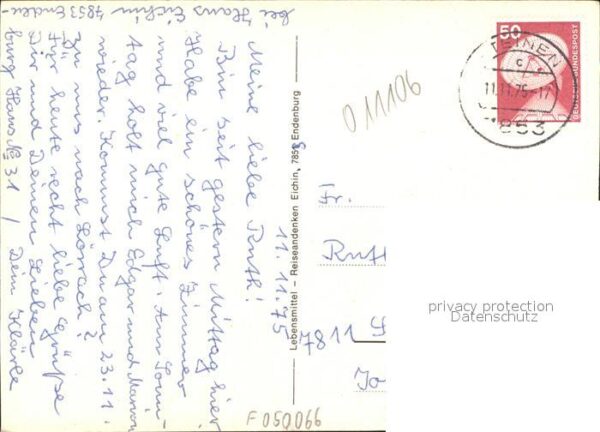 bei Hans Eichin 7853 Enden-
burg Haus No 31 / Dein Klärle
11.11.75
Meine liebe Ruth!
Bin seit gestern Mittag hier
Habe ein schönes Zimmer
und viel gute Luft. Am Sonn-
tag holt mich Edgar und Marion
wieder. Kommst Du am 23.11.
zu uns nach Lörrach?
Für heute recht liebe Grüße
Dir und Deinen Lieben
Lebensmittel – Reiseandenken Eichin, 7851 Endenburg
011106
Fr.
7811
F 050066
50
DEUTSCHE BUNDESPOST
11.11.75-17
7853
privacy protection
Datenschutz